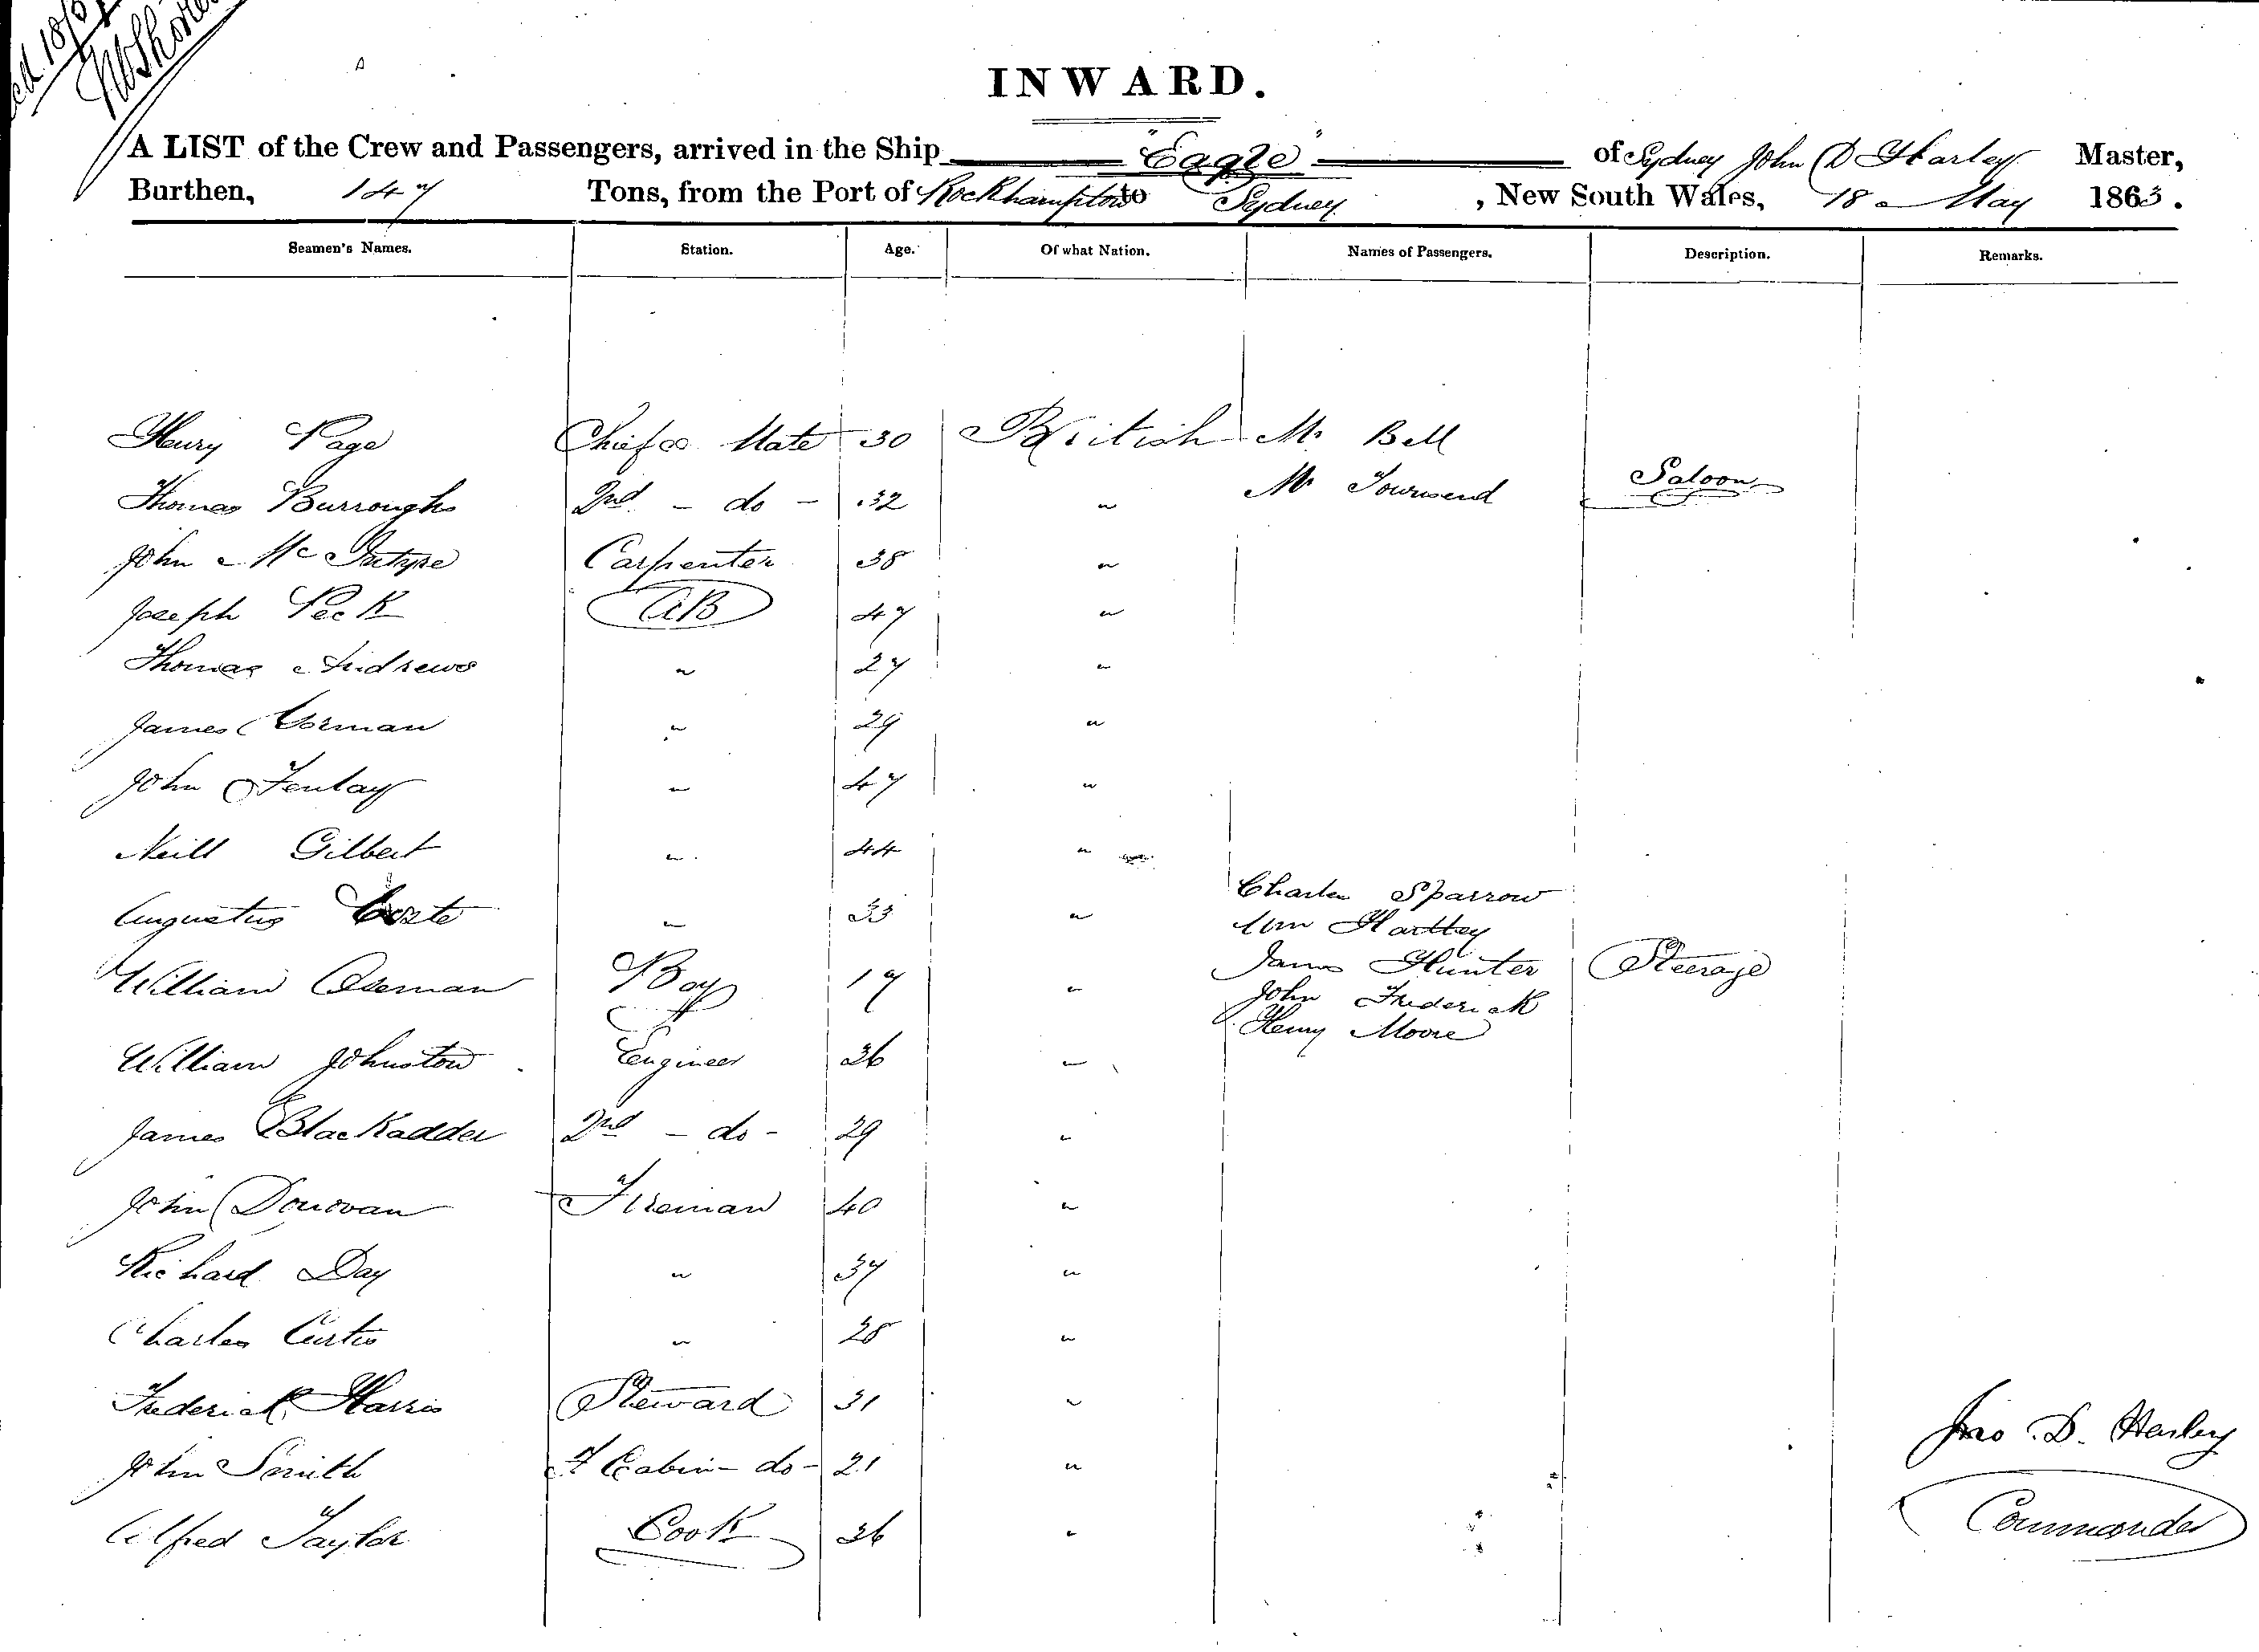 INWARD.
A LIST of the Crew and Passengers, arrived in the Ship "Eagle" of Sydney John D Harley Master,
Burthen, 147 Tons, from the Port of Rockhampton to Sydney, New South Wales, 18 May 1863.
Seamen's Names. Station. Age. Of what Nation. Names of Passengers. Description. Remarks.
Henry Page Chief Mate 30 British Mr Bell
Mr Townsend Saloon
Thomas Burroughs 2nd - do - 32 "
John McIntyre Carpenter 38 "
Joseph Peck AB 47 "
Thomas Andrews " 27 "
James Gorman " 29 "
John Fenlay " 47 "
Neill Gilbert " 44 "
Charles Sparrow
Augustus " 33 "
Wm Hartley
James Hunter Steerage
William Boy 17 "
John Frederick
Henry Moore
William Johnston Engineer 36 "
James Blackadder 2nd - do - 29 "
John Donovan Fireman 40 "
Richard Day " 37 "
Charles Curtis " 28 "
Frederick Harris Steward 31 "
Jno. D. Harley
John Smith F Cabin - do - 21 "
Commander
Alfred Taylor Cook 36 "